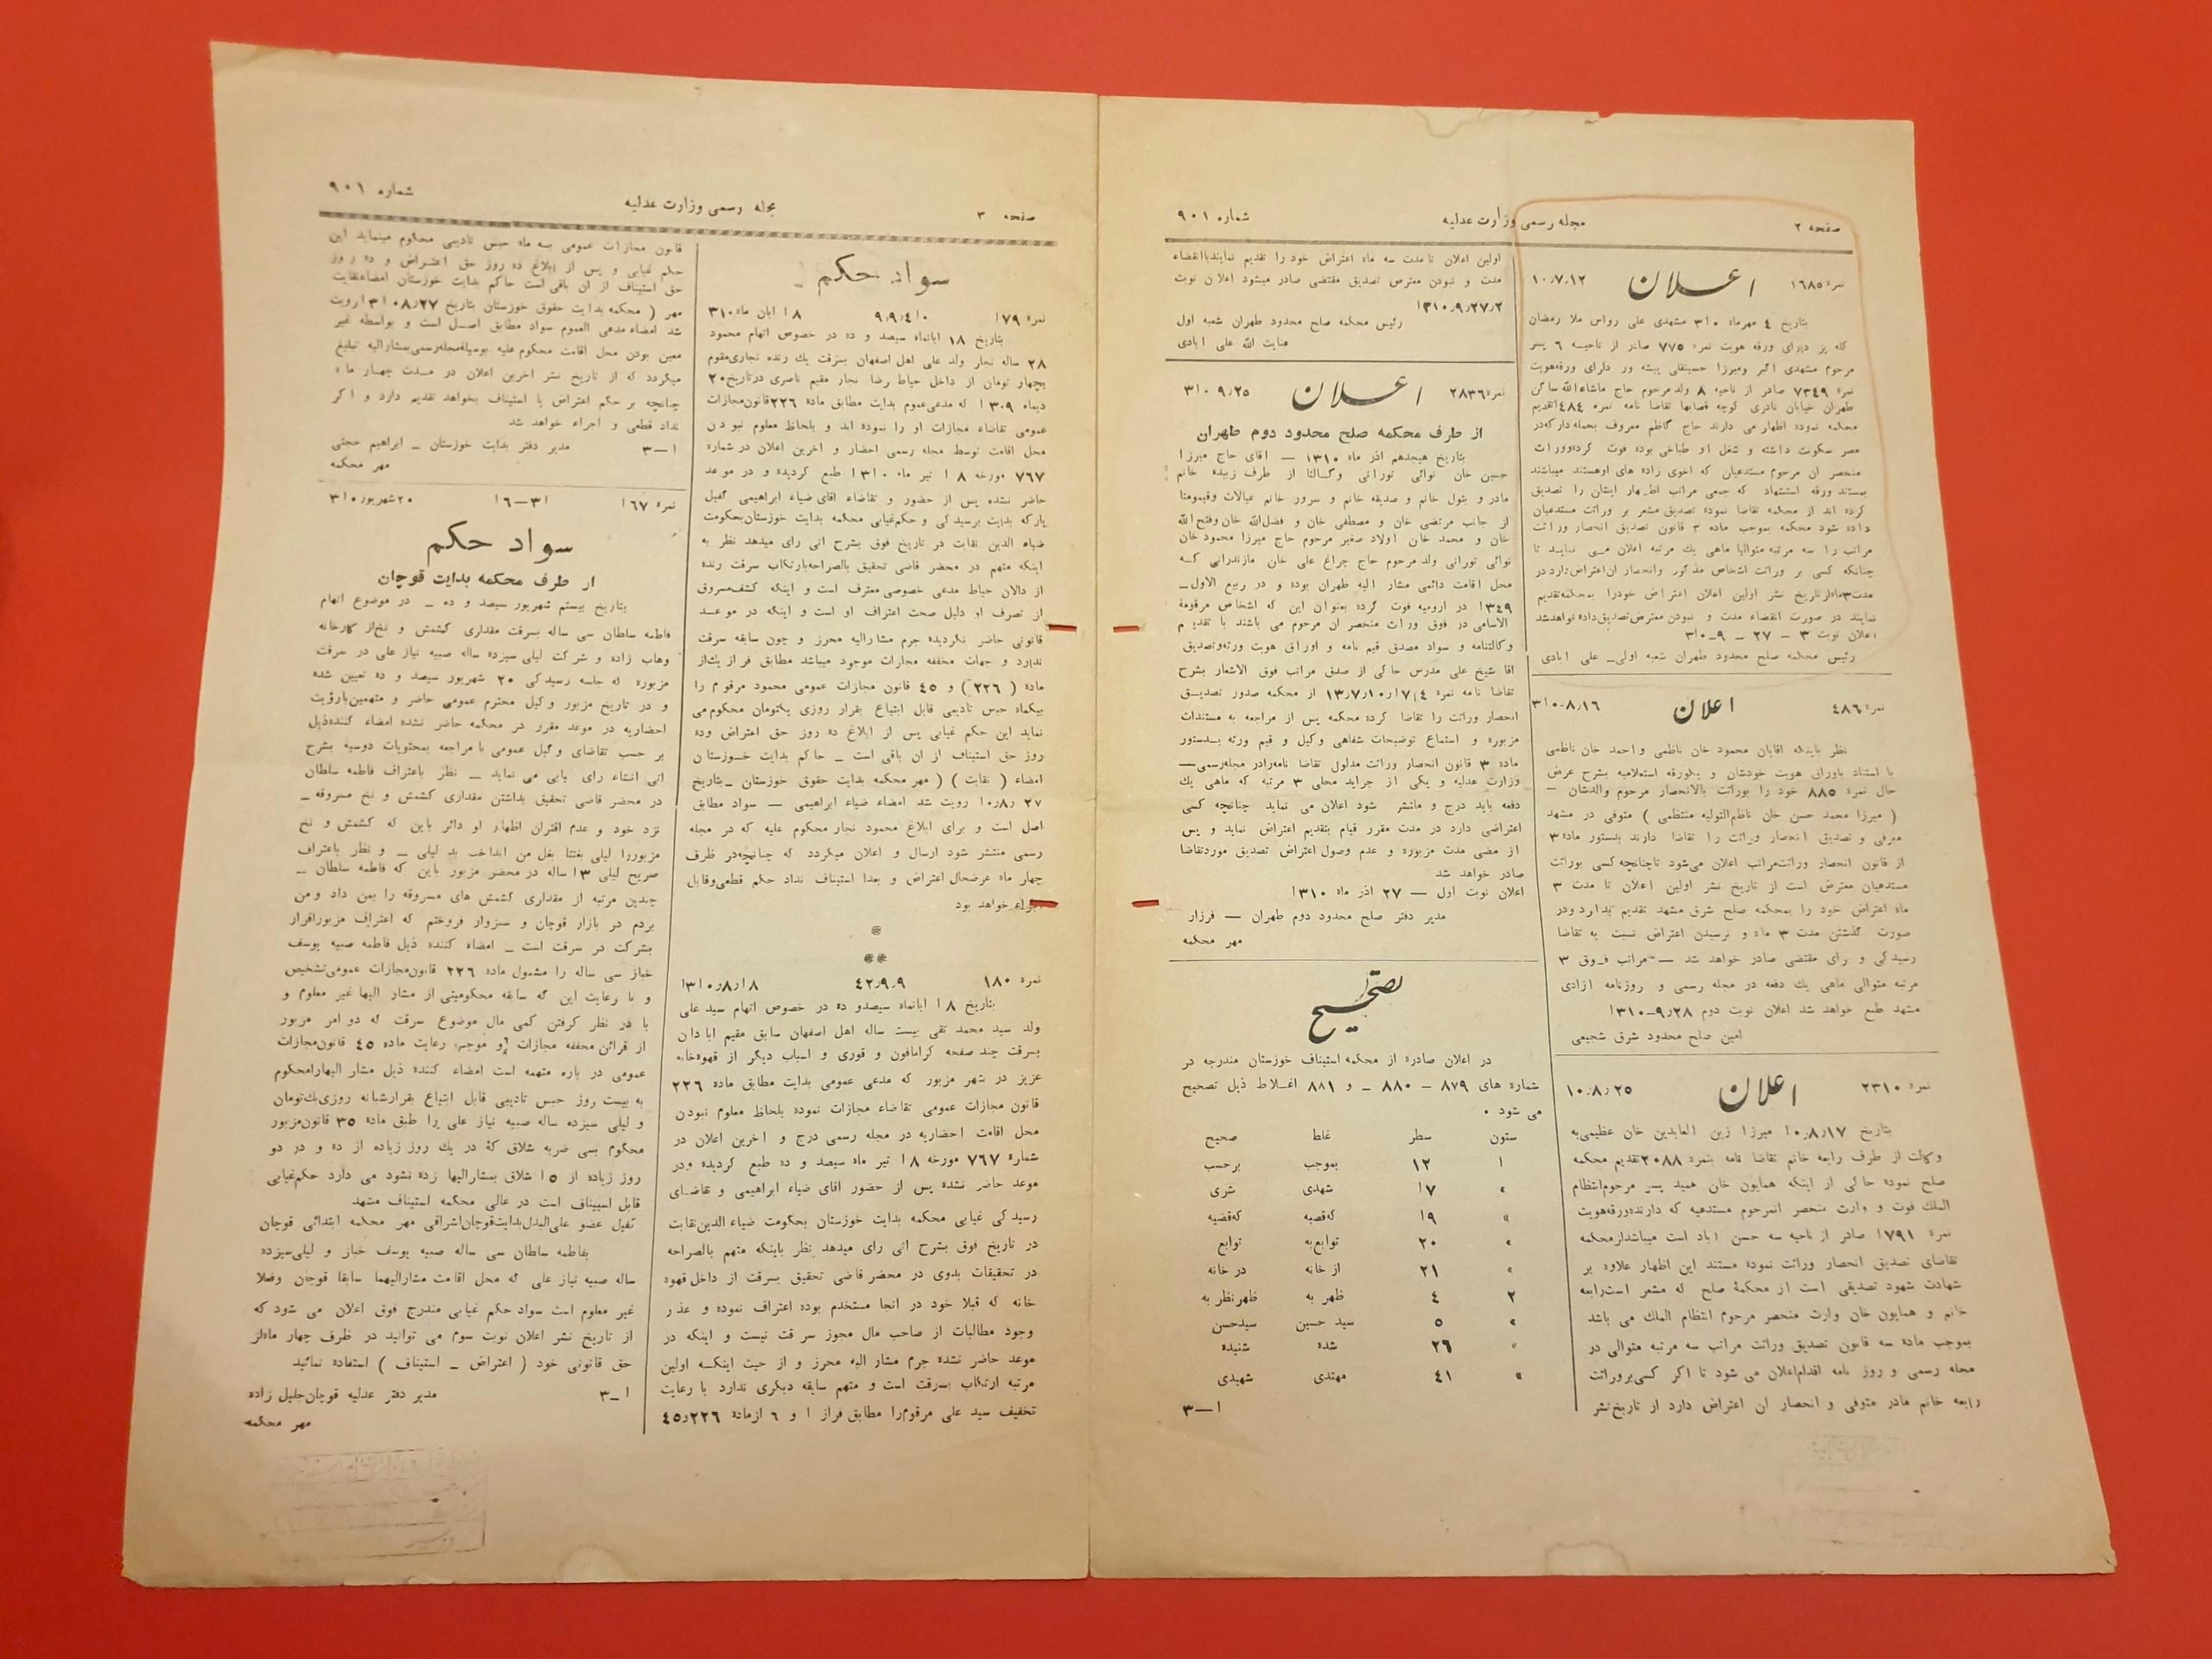 صفحه ۲
مجله رسمی وزارت عدلیه
شماره ۹۰۱
نمره ۱۶۸۵
اعلان
۱۰٫۷٫۱۲
بتاریخ ٤ مهرماه ۳۱۰ مشهدی علی رواس ملا رمضان
کله پز دارای ورقه هویت نمره ۷۷۵ صادر از ناحیه ٦ پسر
مرحوم مشهدی اکبر ومیرزا حسینقلی پیشه ور دارای ورقه‌هویت
نمره ۷۳٤۹ صادر از ناحیه ۸ ولد مرحوم حاج ماشاءالله ساکن
طهران خیابان نادری کوچه قصابها تقاضا نامه نمره ٤۸٤ اتقدیم
محکمه نموده اظهار می دارند حاج کاظم معروف بحمله دارکه‌در
مصر سکونت داشته و شغل او طباخی بوده فوت کرده‌وورات
منحصر ان مرحوم مستدعیان که اخوی زاده های اوهستند میباشند
بمستند ورقه استشهاد که جمعی مراتب اظهار ایشان را تصدیق
کرده اند از محکمه تقاضا نموده تصدیق مشعر بر وراثت مستدعیان
داده شود محکمه بموجب ماده ۳ قانون تصدیق انحصار وراثت
مراتب را سه مرتبه متوالیا ماهی یك مرتبه اعلان می نماید تا
چنانکه کسی بر وراثت اشخاص مذکور وانحصار ان‌اعتراض‌دارد در
مدت۳ماه‌ازتاریخ نشر اولین اعلان اعتراض خودرا بمحکمه‌تقدیم
نمایند در صورت انقضاء مدت و نبودن معترض‌تصدیق‌داده‌خواهدشد
اعلان نوبت ۳ – ۲۷ – ۹–۳۱۰
رئیس محکمه صلح محدود طهران شعبه اولی– علی ابادی
نمره ٤۸٦
اعلان
۳۱۰-۸٫۱٦
نظر باینکه اقایان محمود خان ناظمی و احمد خان ناظمی
با استناد باوراق هویت خودشان و یکورقه استعلامیه بشرح عرض
حال نمره ۸۸۵ خود را بوراثت بالانحصار مرحوم والدشان –
( میرزا محمد حسن خان ناظم‌التولیه منتظمی ) متوفی در مشهد
معرفی و تصدیق انحصار وراثت را تقاضا دارند بدستور ماده ۳
از قانون انحصار وراثت‌مراتب اعلان می‌شود تاچنانچه کسی بوراثت
مستدعیان معترض است از تاریخ نشر اولین اعلان تا مدت ۳
ماه اعتراض خود را بمحکمه صلح شرق مشهد تقدیم بدارد ودر
صورت گذشتن مدت ۳ ماه و نرسیدن اعتراض نسبت به تقاضا
رسیدگی و رای مقتضی صادر خواهد شد – مراتب فوق ۳
مرتبه متوالی ماهی یك دفعه در مجله رسمی و روزنامه ازادی
مشهد طبع خواهد شد اعلان نوبت دوم ۹٫۲۸-۱۳۱۰
امین صلح محدود شرق شجیعی
نمره ۲۳۱۰
اعلان
۱۰٫۸٫۲۵
بتاریخ ۱۰٫۸٫۱۷ میرزا زین العابدین خان عظیمی‌به
وکالت از طرف رابعه خانم تقاضا نامه بنمره ۲۰۸۸ تقدیم محکمه
صلح نموده حاکی از اینکه همایون خان همید پسر مرحوم‌انتظام
الملك فوت و وارث منحصر انمرحوم مستدعیه که دارنده‌ورقه‌هویت
نمره ۱۷۹۱ صادر از ناحیه سه حسن اباد است میباشدازمحکمه
تقاضای تصدیق انحصار وراثت نموده مستند این اظهار علاوه بر
شهادت شهود تصدیقی است از محکمهٔ صلح که مشعر است‌رابعه
خانم و همایون خان وارث منحصر مرحوم انتظام الملك می باشد
بموجب ماده سه قانون تصدیق وراثت مراتب سه مرتبه متوالی در
مجله رسمی و روز نامه اقدام‌اعلان می شود تا اگر کسی‌بروراثت
رابعه خانم مادر متوفی و انحصار ان اعتراض دارد از تاریخ‌نشر
اولین اعلان تامدت سه ماه اعتراض خود را تقدیم نمایندباانقضاء
مدت و نبودن معترض تصدیق مقتضی صادر میشود اعلان نوبت
۱۳۱۰٫۹٫۲۷٫۲
رئیس محکمه صلح محدود طهران شعبه اول
عنایت الله علی ابادی
نمره ۲۸۳٦
اعلان
۳۱۰ ۹٫۲۵
از طرف محکمه صلح محدود دوم طهران
بتاریخ هیجدهم اذر ماه ۱۳۱۰ – اقای حاج میرزا
حسین خان نوائی تورانی وکالتا از طرف زبیده خانم
مادر و بتول خانم و صدیقه خانم و سرور خانم عیالات وقیمومتا
از جانب مرتضی خان و مصطفی خان و فضل‌الله خان وفتح الله
خان و محمد خان اولاد صغیر مرحوم حاج میرزا محمود خان
نوائی تورانی ولد مرحوم حاج چراغ علی خان مازندرانی که
محل اقامت دائمی مشار الیه طهران بوده و در ربیع الاول–
۱۳٤۹ در ارومیه فوت کرده بعنوان این که اشخاص مرقومة
الاسامی در فوق وراث منحصر ان مرحوم می باشند با تقدیم
وکالتنامه و سواد مصدق قیم نامه و اوراق هویت ورثه‌وتصدیق
اقا شیخ علی مدرس حاکی از صدق مراتب فوق الاشعار بشرح
تقاضا نامه نمره ۱۷٫٤ ۱۳٫۷٫۱۰ از محکمه صدور تصدیق
انحصار وراثت را تقاضا کرده محکمه پس از مراجعه به مستندات
مزبوره و استماع توضیحات شفاهی وکیل و قیم ورثه بدستور
ماده ۳ قانون انحصار وراثت مدلول تقاضا نامه‌رادر مجله‌رسمی–
وزارت عدلیه و یکی از جراید محلی ۳ مرتبه که ماهی یك
دفعه باید درج و مانشر شود اعلان می نماید چنانچه کسی
اعتراضی دارد در مدت مقرر قیام بتقدیم اعتراض نماید و پس
از مضی مدت مزبوره و عدم وصول اعتراض تصدیق موردتقاضا
صادر خواهد شد
اعلان نوبت اول – ۲۷ اذر ماه ۱۳۱۰
مدیر دفتر صلح محدود دوم طهران – فرزار
مهر محکمه
تصحیح
در اعلان صادره از محکمه استیناف خوزستان مندرجه در
شماره های ۸۷۹ – ۸۸۰ – و ۸۸۱ اغلاط ذیل تصحیح
می شود .
ستون سطر غلط صحیح
۱ ۱۲ بموجب برحسب
» ۱۷ شهدی شری
» ۱۹ که‌قصبه که‌قضیه
» ۲۰ توابع‌به توابع
» ۲۱ از خانه در خانه
۲ ٤ ظهر به ظهرنظر به
» ۵ سید حسین سیدحسن
» ۲٦ شده شنیده
» ٤۱ مهتدی شهیدی
۱–۳
صفحه ۳
مجله رسمی وزارت عدلیه
شماره ۹۰۱
سواد حکم
نمره ۱۷۹
۹٫۹٫٤۱۰
۱۸ ابان ماه ۳۱۰
بتاریخ ۱۸ ابانماه سیصد و ده در خصوص اتهام محمود
۲۸ ساله نجار ولد علی اهل اصفهان بسرقت یك رنده نجاری‌مقوم
بچهار تومان از داخل حیاط رضا نجار مقیم ناصری درتاریخ۲۰
دیماه ۱۳۰۹ که مدعی‌عموم بدایت مطابق ماده ۲۲٦ قانون‌مجازات
عمومی تقاضاء مجازات او را نموده اند و بلحاظ معلوم نبودن
محل اقامت توسط مجله رسمی احضار و اخرین اعلان در شماره
۷٦۷ مورخه ۱۸ تیر ماه ۱۳۱۰ طبع گردیده و در موعد
حاضر نشده پس از حضور و تقاضاء اقای ضیاء ابراهیمی کفیل
پارکه بدایت برسیدگی و حکم‌غیابی محکمه بدایت خوزستان‌بحکومت
ضیاء الدین نقابت در تاریخ فوق بشرح اتی رای میدهد نظر به
اینکه متهم در محضر قاضی تحقیق بالصراحه‌بارتکاب سرقت رنده
از دالان حیاط مدعی خصوصی معترف است و اینکه کشف‌مسروق
از تصرف او دلیل صحت اعتراف او است و اینکه در موعد
قانونی حاضر نگردیده جرم مشارالیه محرز و چون سابقه سرقت
ندارد و جهات مخففه مجازات موجود میباشد مطابق فراز یك‌از
ماده ( ۲۲٦ ) و ٤۵ قانون مجازات عمومی محمود مرقوم را
بیکماه حبس تادیبی قابل ابتیاع بقرار روزی یکتومان محکوم‌می
نماید این حکم غیابی پس از ابلاغ ده روز حق اعتراض وده
روز حق استیناف از ان باقی است – حاکم بدایت خوزستان
امضاء ( نقابت ) ( مهر محکمه بدایت حقوق خوزستان –بتاریخ
۱۰٫۸٫ ۲۷ رویت شد امضاء ضیاء ابراهیمی – سواد مطابق
اصل است و برای ابلاغ محمود نجار محکوم علیه که در مجله
رسمی منتشر شود ارسال و اعلان میگردد که چنانچه‌در ظرف
چهار ماه عرضحال اعتراض و بعدا استیناف نداد حکم قطعی‌وقابل
خواهد بود
*
**
نمره ۱۸۰
٤۲٫۹٫۹
۱۳۱۰٫۸٫۱۸
بتاریخ ۱۸ ابانماه سیصدو ده در خصوص اتهام سید علی
ولد سید محمد تقی بیست ساله اهل اصفهان سابق مقیم ابادان
بسرقت چند صفحه گرامافون و قوری و اسباب دیگر از قهوه‌خانه
عزیز در شهر مزبور که مدعی عمومی بدایت مطابق ماده ۲۲٦
قانون مجازات عمومی تقاضاء مجازات نموده بلحاظ معلوم نبودن
محل اقامت احضاریه در مجله رسمی درج و اخرین اعلان در
شماره ۷٦۷ مورخه ۱۸ تیر ماه سیصد و ده طبع گردیده ودر
موعد حاضر نشده پس از حضور اقای ضیاء ابراهیمی و تقاضای
رسیدگی غیابی محکمه بدایت خوزستان بحکومت ضیاء الدین‌نقابت
در تاریخ فوق بشرح اتی رای میدهد نظر باینکه متهم بالصراحه
در تحقیقات بدوی در محضر قاضی تحقیق بسرقت از داخل قهوه
خانه که قبلا خود در انجا مستخدم بوده اعتراف نموده و عذر
وجود مطالبات از صاحب مال مجوز سرقت نیست و اینکه در
موعد حاضر نشده جرم مشار الیه محرز و از حیث اینکه اولین
مرتبه ارتکاب بسرقت است و متهم سابقه دیگری ندارد با رعایت
تخفیف سید علی مرقوم‌را مطابق فراز ۱ و ٦ ازماده ۲۲٦٫٤۵
قانون مجازات عمومی بسه ماه حبس تادیبی محکوم مینماید این
حکم غیابی و پس از ابلاغ ده روز حق اعتراض و ده روز
حق استیناف از ان باقی است حاکم بدایت خوزستان امضاءنقابت
مهر ( محکمه بدایت حقوق خوزستان بتاریخ ۳۱۰٫۸٫۲۷ رویت
شد امضاء مدعی العموم سواد مطابق اصل است و بواسطه غیر
معین بودن محل اقامت محکوم علیه بوسیله‌مجله‌رسمی‌بمشارالیه تبلیغ
میگردد که از تاریخ نشر اخرین اعلان در مدت چهار ماه
چنانچه بر حکم اعتراض یا استیناف بخواهد تقدیم دارد و اگر
نداد قطعی و اجراء خواهد شد
۱–۳ مدیر دفتر بدایت خوزستان – ابراهیم حجتی
مهر محکمه
نمره ۱٦۷
۳۱–۱٦
۲۰شهریور۳۱۰
سواد حکم
از طرف محکمه بدایت قوچان
بتاریخ بیستم شهریور سیصد و ده – در موضوع اتهام
فاطمه سلطان سی ساله بسرقت مقداری کشمش و نخ‌از کارخانه
وهاب زاده و شرکت لیلی سیزده ساله صبیه نیاز علی در سرقت
مزبوره که جلسه رسیدگی ۲۰ شهریور سیصد و ده تعیین شده
و در تاریخ مزبور وکیل محترم عمومی حاضر و متهمین‌بارؤیت
احضاریه در موعد مقرر در محکمه حاضر نشده امضاء کننده‌ذیل
بر حسب تقاضای وکیل عمومی با مراجعه بمحتویات دوسیه بشرح
اتی انشاء رای یابی می نماید – نظر باعتراف فاطمه سلطان
در محضر قاضی تحقیق بداشتن مقداری کشمش و نخ مسروقه –
نزد خود و عدم اقتران اظهار او دائر باین که کشمش و نخ
مزبوررا لیلی بغتتا بغل من انداخت بد لیلی – و نظر باعتراف
صریح لیلی ۱۳ساله در محضر مزبور باین که فاطمه سلطان –
چندین مرتبه از مقداری کشمش های مسروقه را بمن داد و من
بردم در بازار قوچان و سبزوار فروختم که اعتراف مزبوراقرار
بشرکت در سرقت است – امضاء کننده ذیل فاطمه صبیه یوسف
خباز سی ساله را مشمول ماده ۲۲٦ قانون‌مجازات عمومی‌تشخیص
و با رعایت این که سابقه محکومیتی از مشار الیها غیر معلوم و
با در نظر گرفتن کمی مال موضوع سرقت که دو امر مزبور
از قرائن مخففه مجازات و موجب رعایت ماده ٤۵ قانون‌مجازات
عمومی در باره متهمه است امضاء کننده ذیل مشار الیهارامحکوم
به بیست روز حبس تادیبی قابل ابتیاع بقرارشبانه روزی‌یك‌تومان
و لیلی سیزده ساله صبیه نیاز علی را طبق ماده ۳۵ قانون‌مزبور
محکوم بسی ضربه شلاق که در یك روز زیاده از ده و در دو
روز زیاده از ۱۵ شلاق بمشارالیها زده نشود می دارد حکم‌غیابی
قابل استیناف است در عالی محکمه استیناف مشهد
کفیل عضو علی‌البدل‌بدایت‌قوچان‌اشراقی مهر محکمه ابتدائی قوچان
بفاطمه سلطان سی ساله صبیه یوسف خباز و لیلی‌سیزده
ساله صبیه نیاز علی که محل اقامت مشارالیهما سابقا قوچان وفعلا
غیر معلوم است سواد حکم غیابی مندرج فوق اعلان می شود که
از تاریخ نشر اعلان نوبت سوم می توانید در ظرف چهار ماه‌از
حق قانونی خود ( اعتراض – استیناف ) استفاده نمائید
۱–۳ مدیر دفتر عدلیه قوچان‌جلیل زاده
مهر محکمه